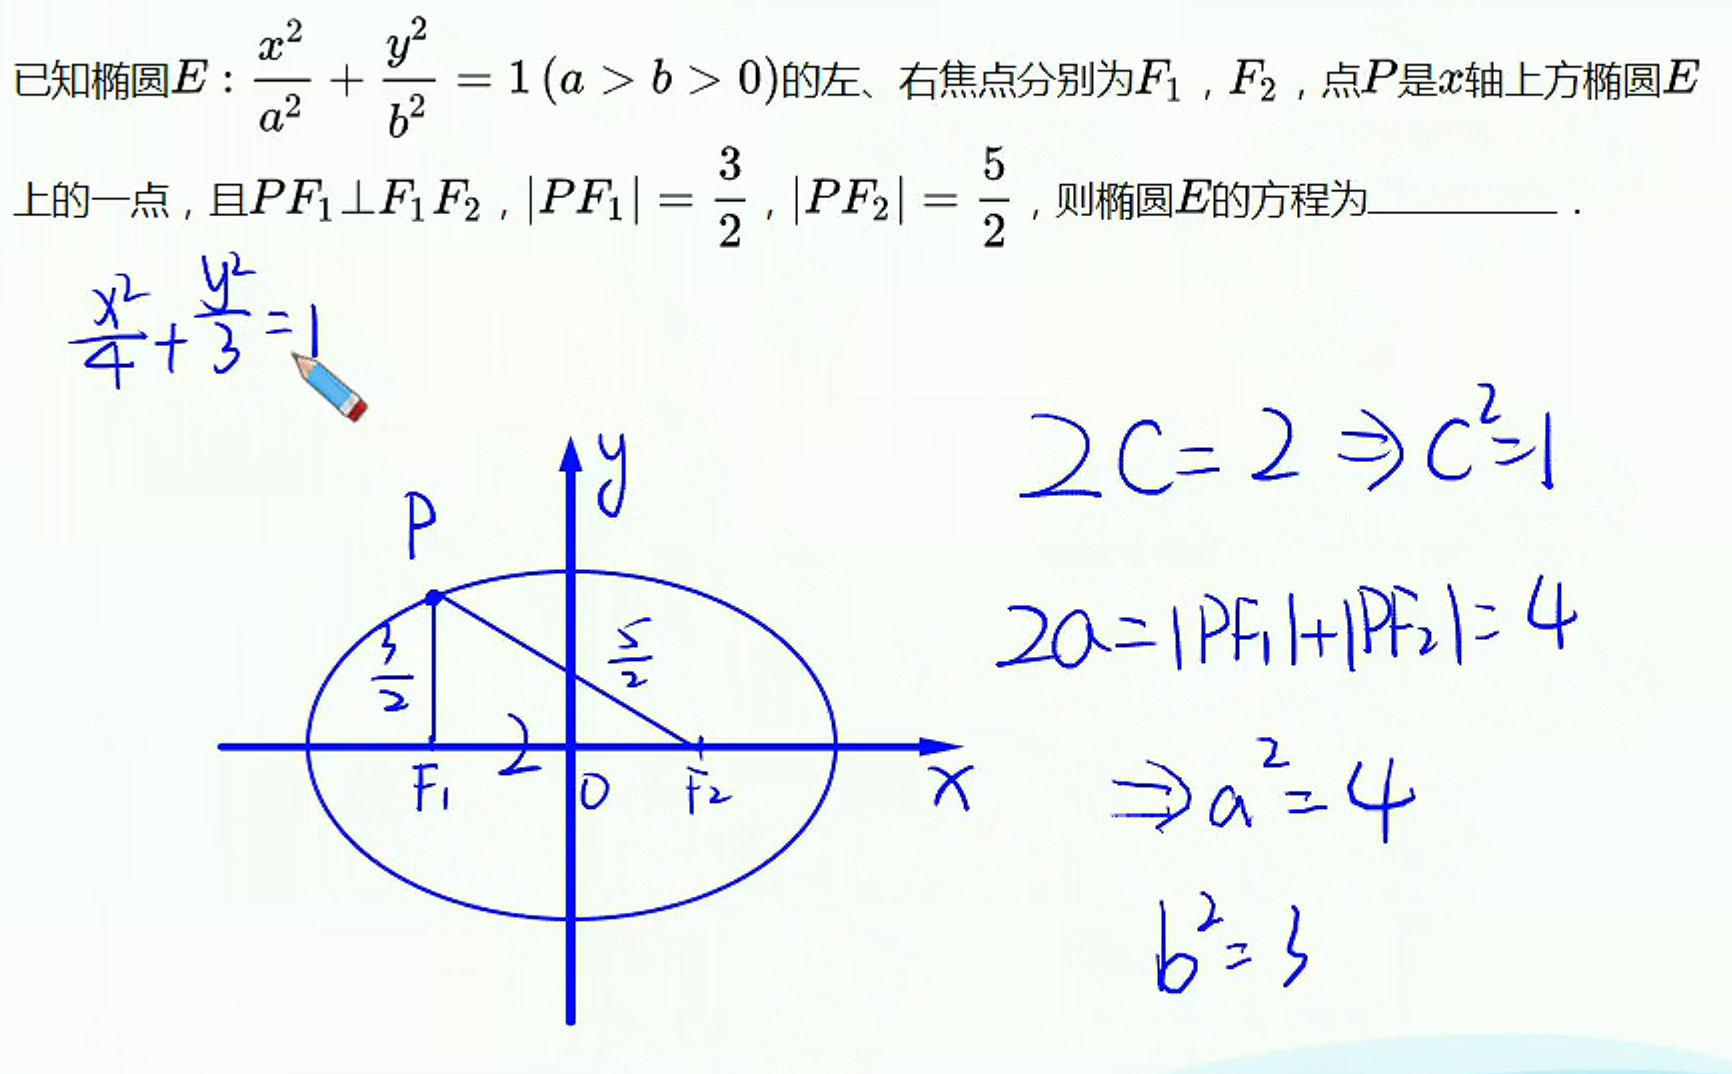 已知椭圆E：x²/a² + y²/b² = 1 (a > b > 0)的左、右焦点分别为F₁，F₂，点P是x轴上方椭圆E
上的一点，且PF₁⊥F₁F₂，|PF₁| = 3/2，|PF₂| = 5/2，则椭圆E的方程为________．
x²/4 + y²/3 = 1
2C = 2 ⇒ C² = 1
y
P
2a = |PF₁| + |PF₂| = 4
3/2
5/2
2
F₁
O
F₂
x
⇒ a² = 4
b² = 3